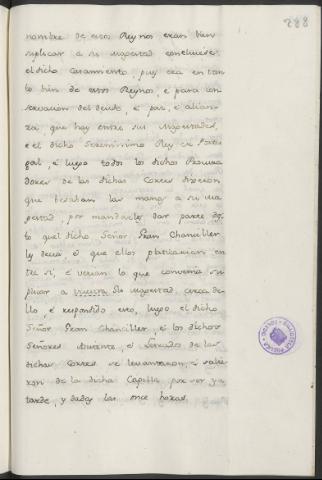 288
nombre de estos Reynos eran bien
suplicar a su Magestad concluiese
el dicho Casamiento, pues era en tan
to bien de estos Reynos, é para con
servacion del deudo, é paz, é alian
za, que hay entre sus Magestades,
é el dicho Serenissimo Rey de Portu
gal, é luego todos los dichos Procura
dores de las dichas Cortes dixeron
que besaban las manos a su Ma
gestad, por mandarles dar parte de
lo que dicho Señor Gran Chanciller
les decia é que ellos platicarian en
tre si, é verian lo que convenia su
plicar a vuestra Magestad, cerca de
llo, é respondido esto, luego el dicho
Señor Gran Chanciller, é los dichos
Señores Asistente, é Letrado de las
dichas Cortes se levantaron, é salie
ron de la dicha Capilla, por ser ya
tarde, y dadas las once horas.